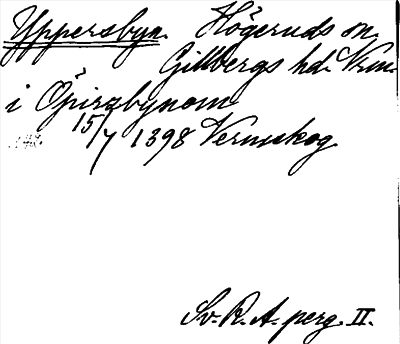 Yppersbyn. Högeruds sn.
Gillbergs hd. Vrm.
i Öpirzbynom
15/7 1398 Vermskog
Sv. R. A. perg. II.